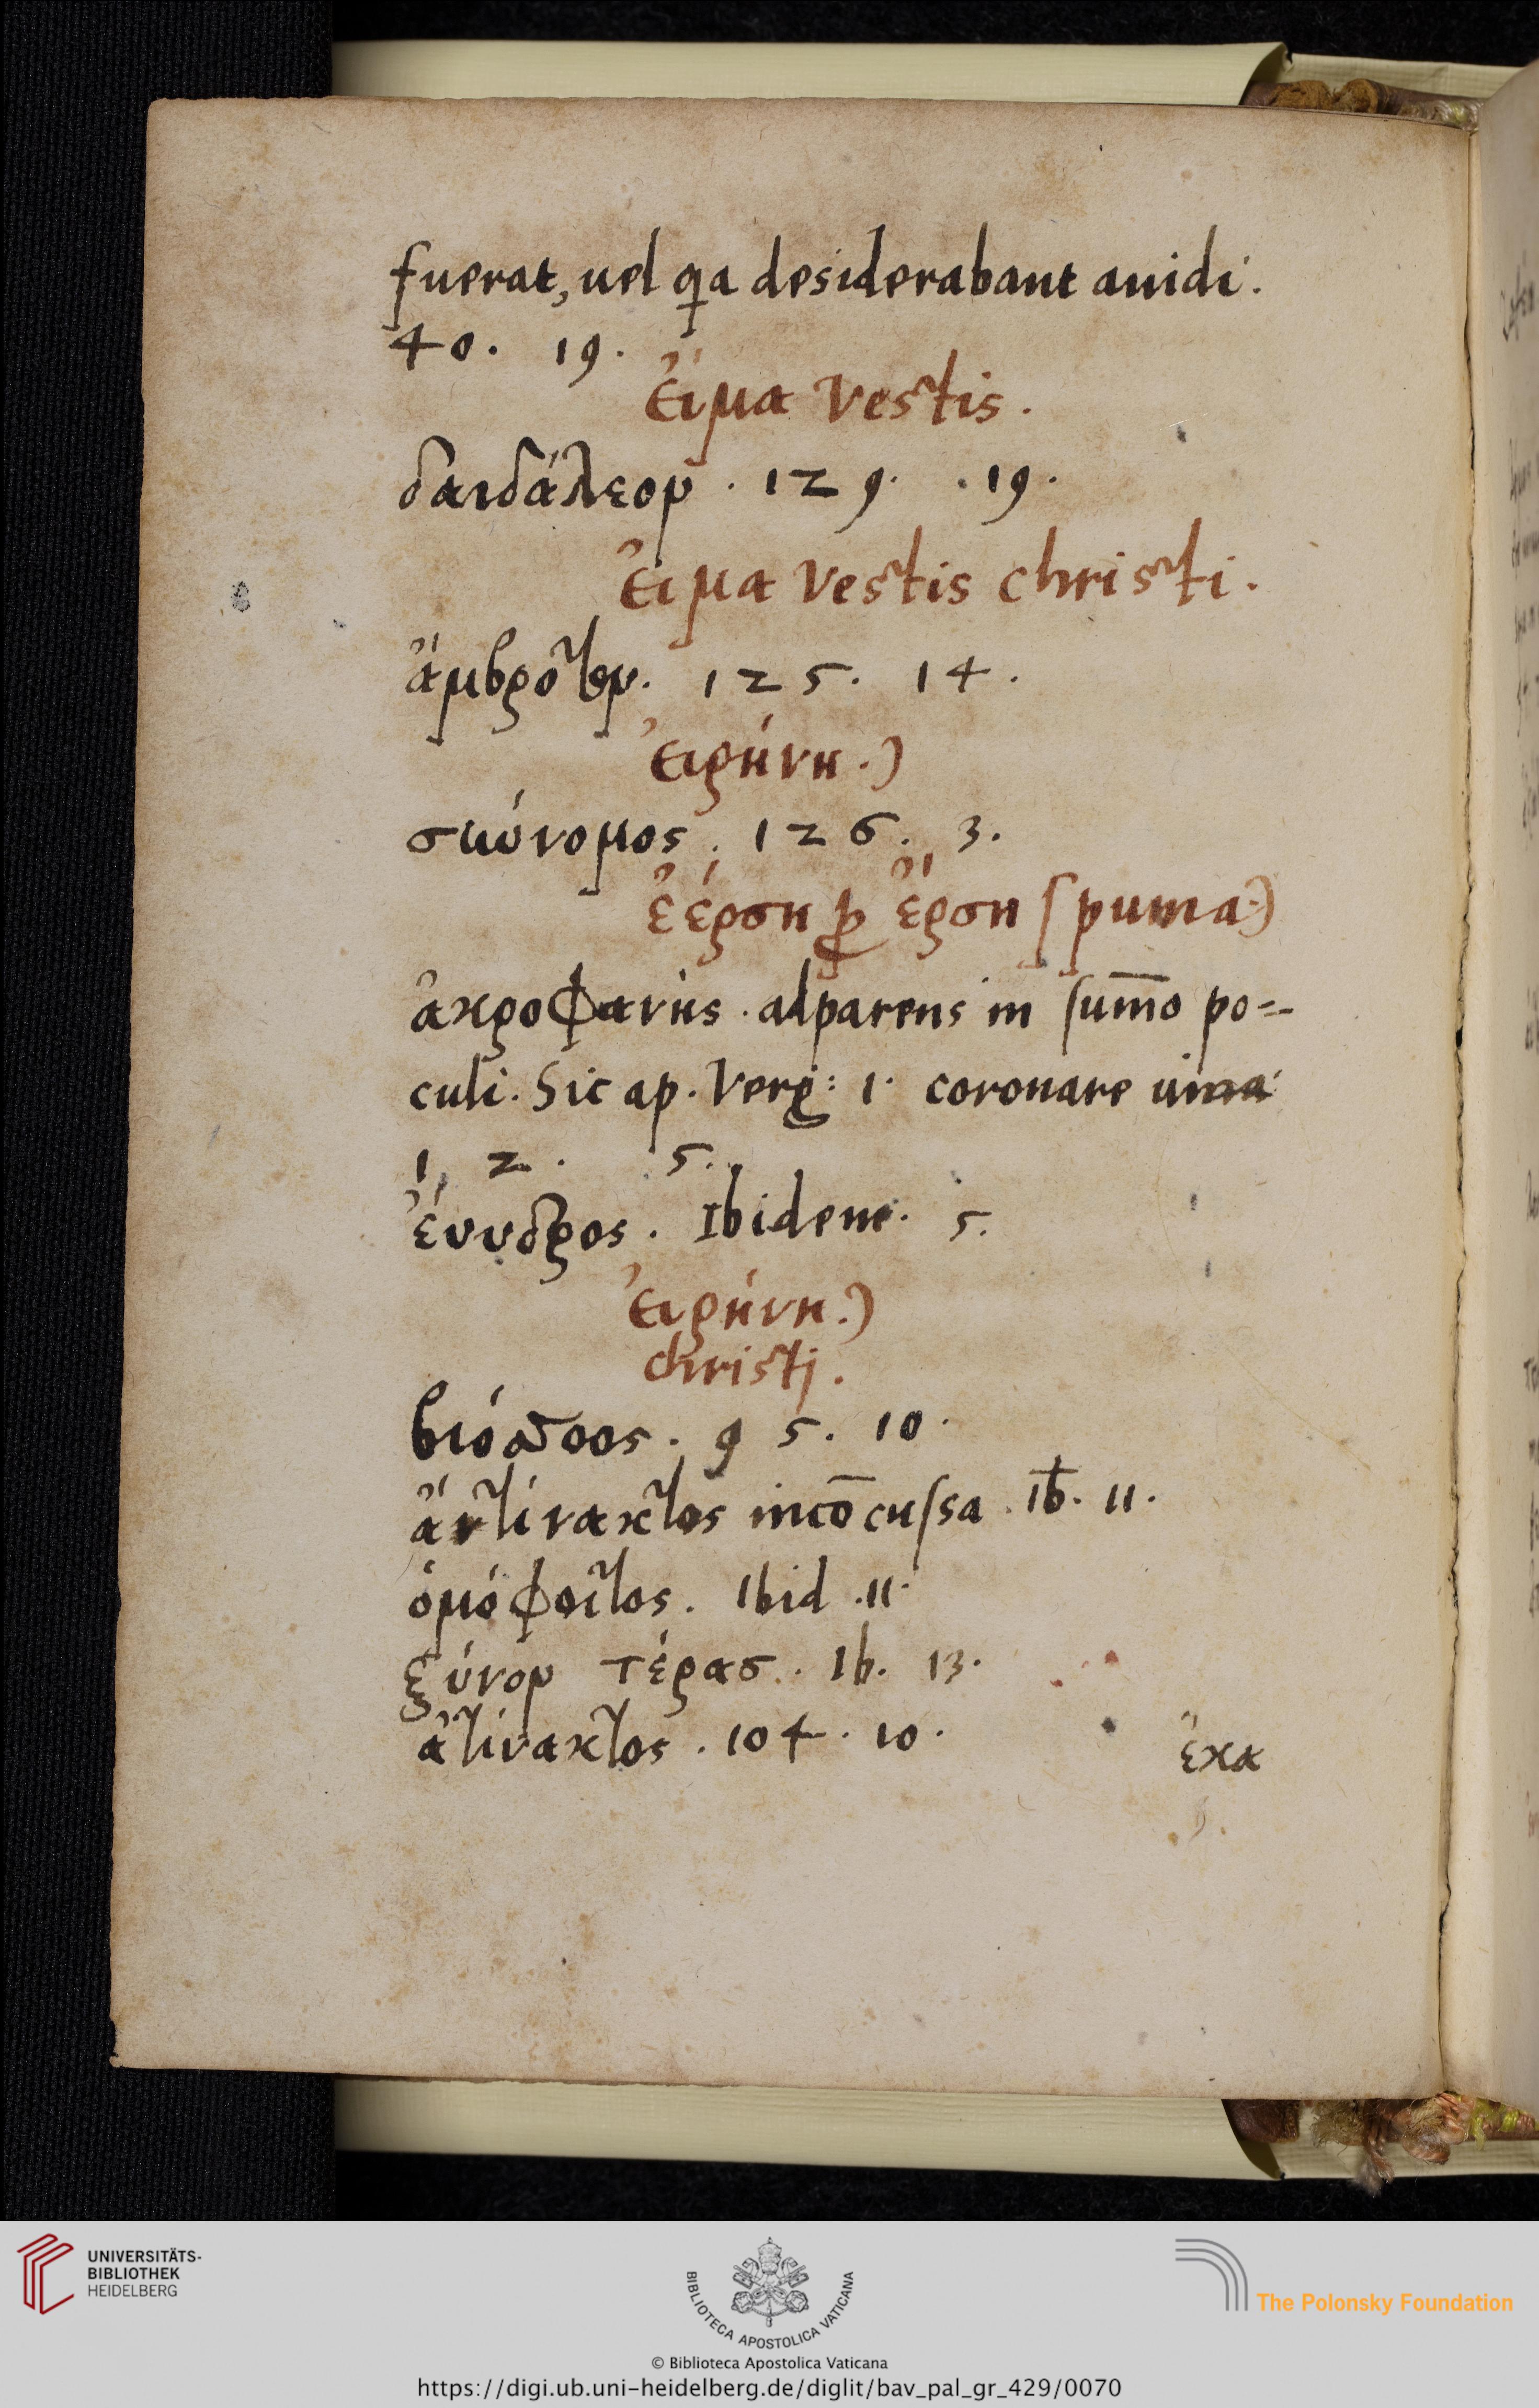 fuerat, uel qa desiderabant auidi.
40. 19.
εἵμα vestis.
δαιδάλεον. 129. .19.
εἵμα vestis christi.
ἄμβροτον. 125. 14.
εἰρήνη.)
σύννομος. 126. 3.
ἐέρση ꝓ ἔρση spuma.)
ἀκροφανὴς. apparens in sum̄o po=
culi. Sic ap. Verg: 1. coronare uina
12. 5.
ἔνυδρος. Ibidem. 5.
εἰρήνη.)
christj.
βιόσσοος. 95. 10.
ἀτίνακτος incōcussa. Ib. 11.
ὁμόφοιτος. Ibid. 11.
ξύνον τέρας. Ib. 13.
ἀτίνακτος. 104. 10.
ἑκα
UNIVERSITÄTS-
BIBLIOTHEK
HEIDELBERG
BIBLIOTECA APOSTOLICA VATICANA
The Polonsky Foundation
© Biblioteca Apostolica Vaticana
https://digi.ub.uni-heidelberg.de/diglit/bav_pal_gr_429/0070